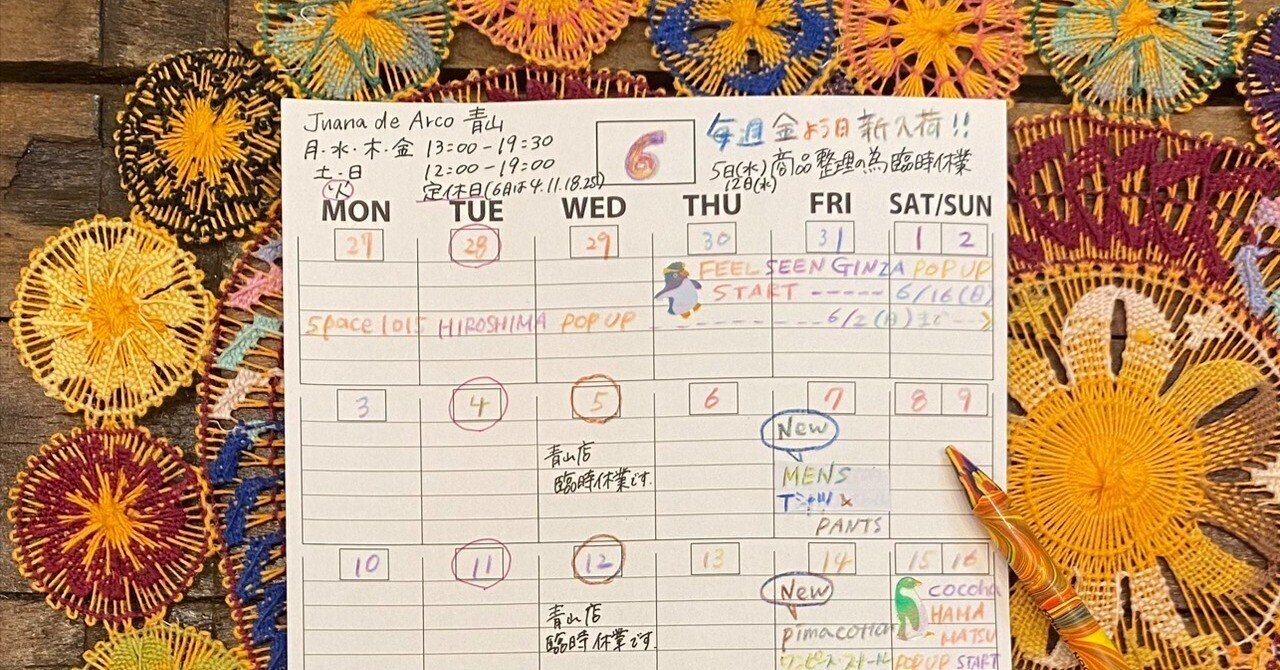 Juana de Arco 青山
月・水・木・金 13:00-19:30
土・日 12:00-19:00
火 定休日(6月は4.11.18.25)
6
毎週金よう日新入荷!!
5日(水)商品整理の為臨時休業
12日(水)
MON TUE WED THU FRI SAT/SUN
27 28 29 30 31 1 2
FEEL SEEN GINZA POP UP
START ----- 6/16(日)
Space lois HIROSHIMA POP UP ------- 6/2(日)まで
3 4 5 6 7 8 9
New
青山店
臨時休業です.
MENS
Tシャツ &
PANTS
10 11 12 13 14 15 16
New
青山店
臨時休業です.
pimacotton
ワンピース・ストール
cocoha
HAMA
MATSU
POPUP START